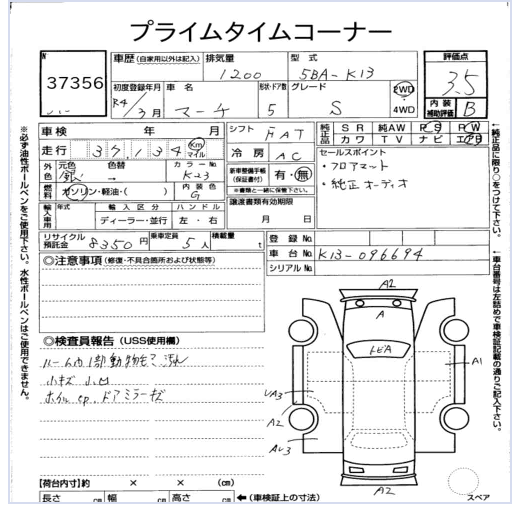 プライムタイムコーナー
37356
車歴 (自家用以外は記入)
排気量
1200
型式
5BA-K13
評価点
3.5
初度登録年月
R4/3月
車名
マーチ
形状・ドア数
5
グレード
S
2WD
4WD
内装
補助評価
B
車検 年 月
走行 37,134 Km
マイル
シフト FAT
冷房 AC
純正品
SR 純AW PS PW
カワ TV ナビ エアB
外色 元色 色替 カラーNo.
銀 → K23
燃料 ガソリン・軽油・( ) 内装色 G
新車整備手帳
(保証書付) 有・無
※書類と一緒に保管下さい。
セールスポイント
・フロアマット
・純正オーディオ
輸入車用 年式 輸入区分 ハンドル
ディーラー・並行 左・右
譲渡書類有効期限
月 日
リサイクル
預託金 8350円
乗車定員 5人
積載量 t
登録No.
車台No. K13-096694
シリアルNo.
◎注意事項 (修復・不具合箇所および状態等)
◎検査員報告 (USS使用欄)
ルーム内1部動物毛? 汚れ
小キズ 小凹
ホイルcp. ドアミラーキズ
A2
A
トビA
A1
UA3
A2
AU3
A2
スペア
【荷台内寸】約 × × (cm)
長さ cm 幅 cm 高さ cm ←(車検証上の寸法)
※必ず油性ボールペンをご使用下さい。水性ボールペンはご使用できません。
←純正品に限り○をつけて下さい。
←車台番号は左詰めで車検証記載の通りご記入下さい。